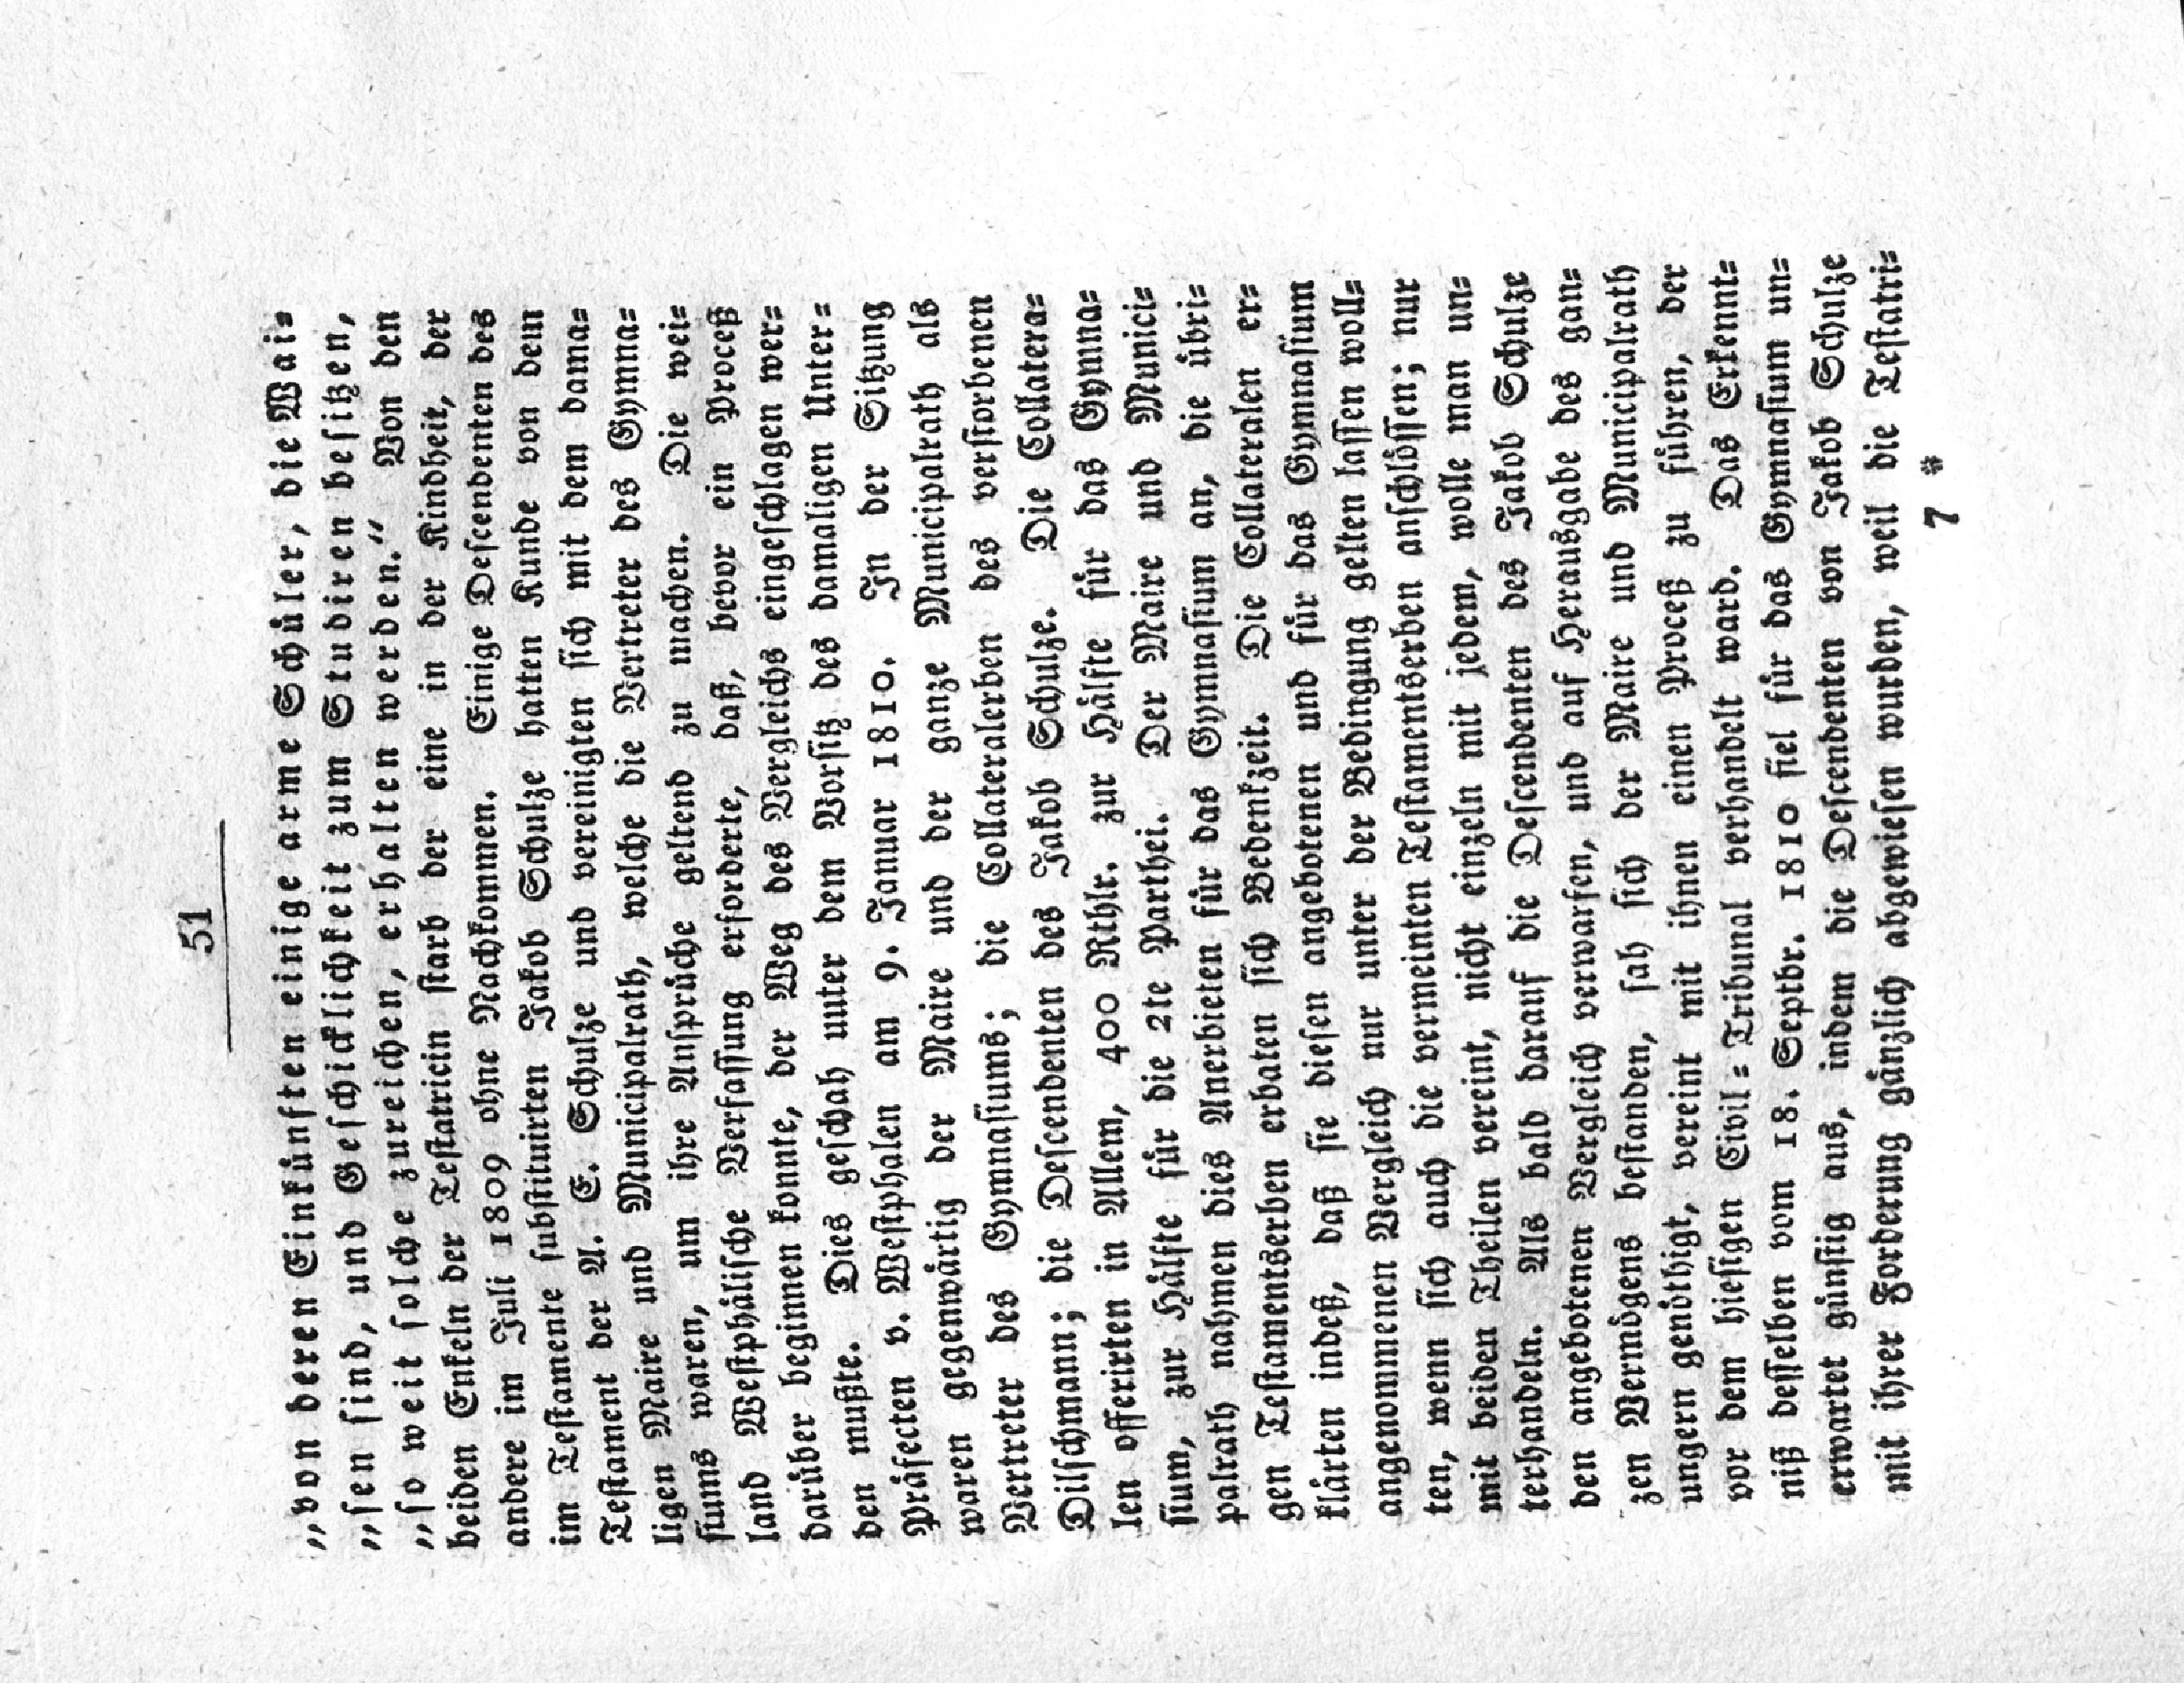 51
„von deren Einkünften einige arme Schüler, die Wai=
„sen sind, und Geschicklichkeit zum Studiren besitzen,
„so weit solche zureichen, erhalten werden.“ Von den
beiden Enkeln der Testatricin starb der eine in der Kindheit, der
andere im Juli 1809 ohne Nachkommen. Einige Descendenten des
im Testamente substituirten Jakob Schulze hatten Kunde von dem
Testament der A. E. Schulze und vereinigten sich mit dem dama=
ligen Maire und Municipalrath, welche die Vertreter des Gymna=
siums waren, um ihre Ansprüche geltend zu machen. Die wei=
land Westphälische Verfassung erforderte, daß, bevor ein Proceß
darüber beginnen konnte, der Weg des Vergleichs eingeschlagen wer=
den mußte. Dies geschah unter dem Vorsitz des damaligen Unter=
Präfecten v. Westphalen am 9. Januar 1810. In der Sitzung
waren gegenwärtig der Maire und der ganze Municipalrath als
Vertreter des Gymnasiums; die Collateralerben des verstorbenen
Dilschmann; die Descendenten des Jakob Schulze. Die Collatera=
len offerirten in Allem, 400 Rthlr. zur Hälfte für das Gymna=
sium, zur Hälfte für die 2te Parthei. Der Maire und Munici=
palrath nahmen dies Anerbieten für das Gymnasium an, die übri=
gen Testamentserben erbaten sich Bedenkzeit. Die Collateralen er=
klärten indeß, daß sie diesen angebotenen und für das Gymnasium
angenommenen Vergleich nur unter der Bedingung gelten lassen woll=
ten, wenn sich auch die vermeinten Testamentserben anschlössen; nur
mit beiden Theilen vereint, nicht einzeln mit jedem, wolle man un=
terhandeln. Als bald darauf die Descendenten des Jakob Schulze
den angebotenen Vergleich verwarfen, und auf Herausgabe des gan=
zen Vermögens bestanden, sah sich der Maire und Municipalrath
ungern genöthigt, vereint mit ihnen einen Proceß zu führen, der
vor dem hiesigen Civil=Tribunal verhandelt ward. Das Erkennt=
niß desselben vom 18. Septbr. 1810 fiel für das Gymnasium un=
erwartet günstig aus, indem die Descendenten von Jakob Schulze
mit ihrer Forderung gänzlich abgewiesen wurden, weil die Testatri=
7 *